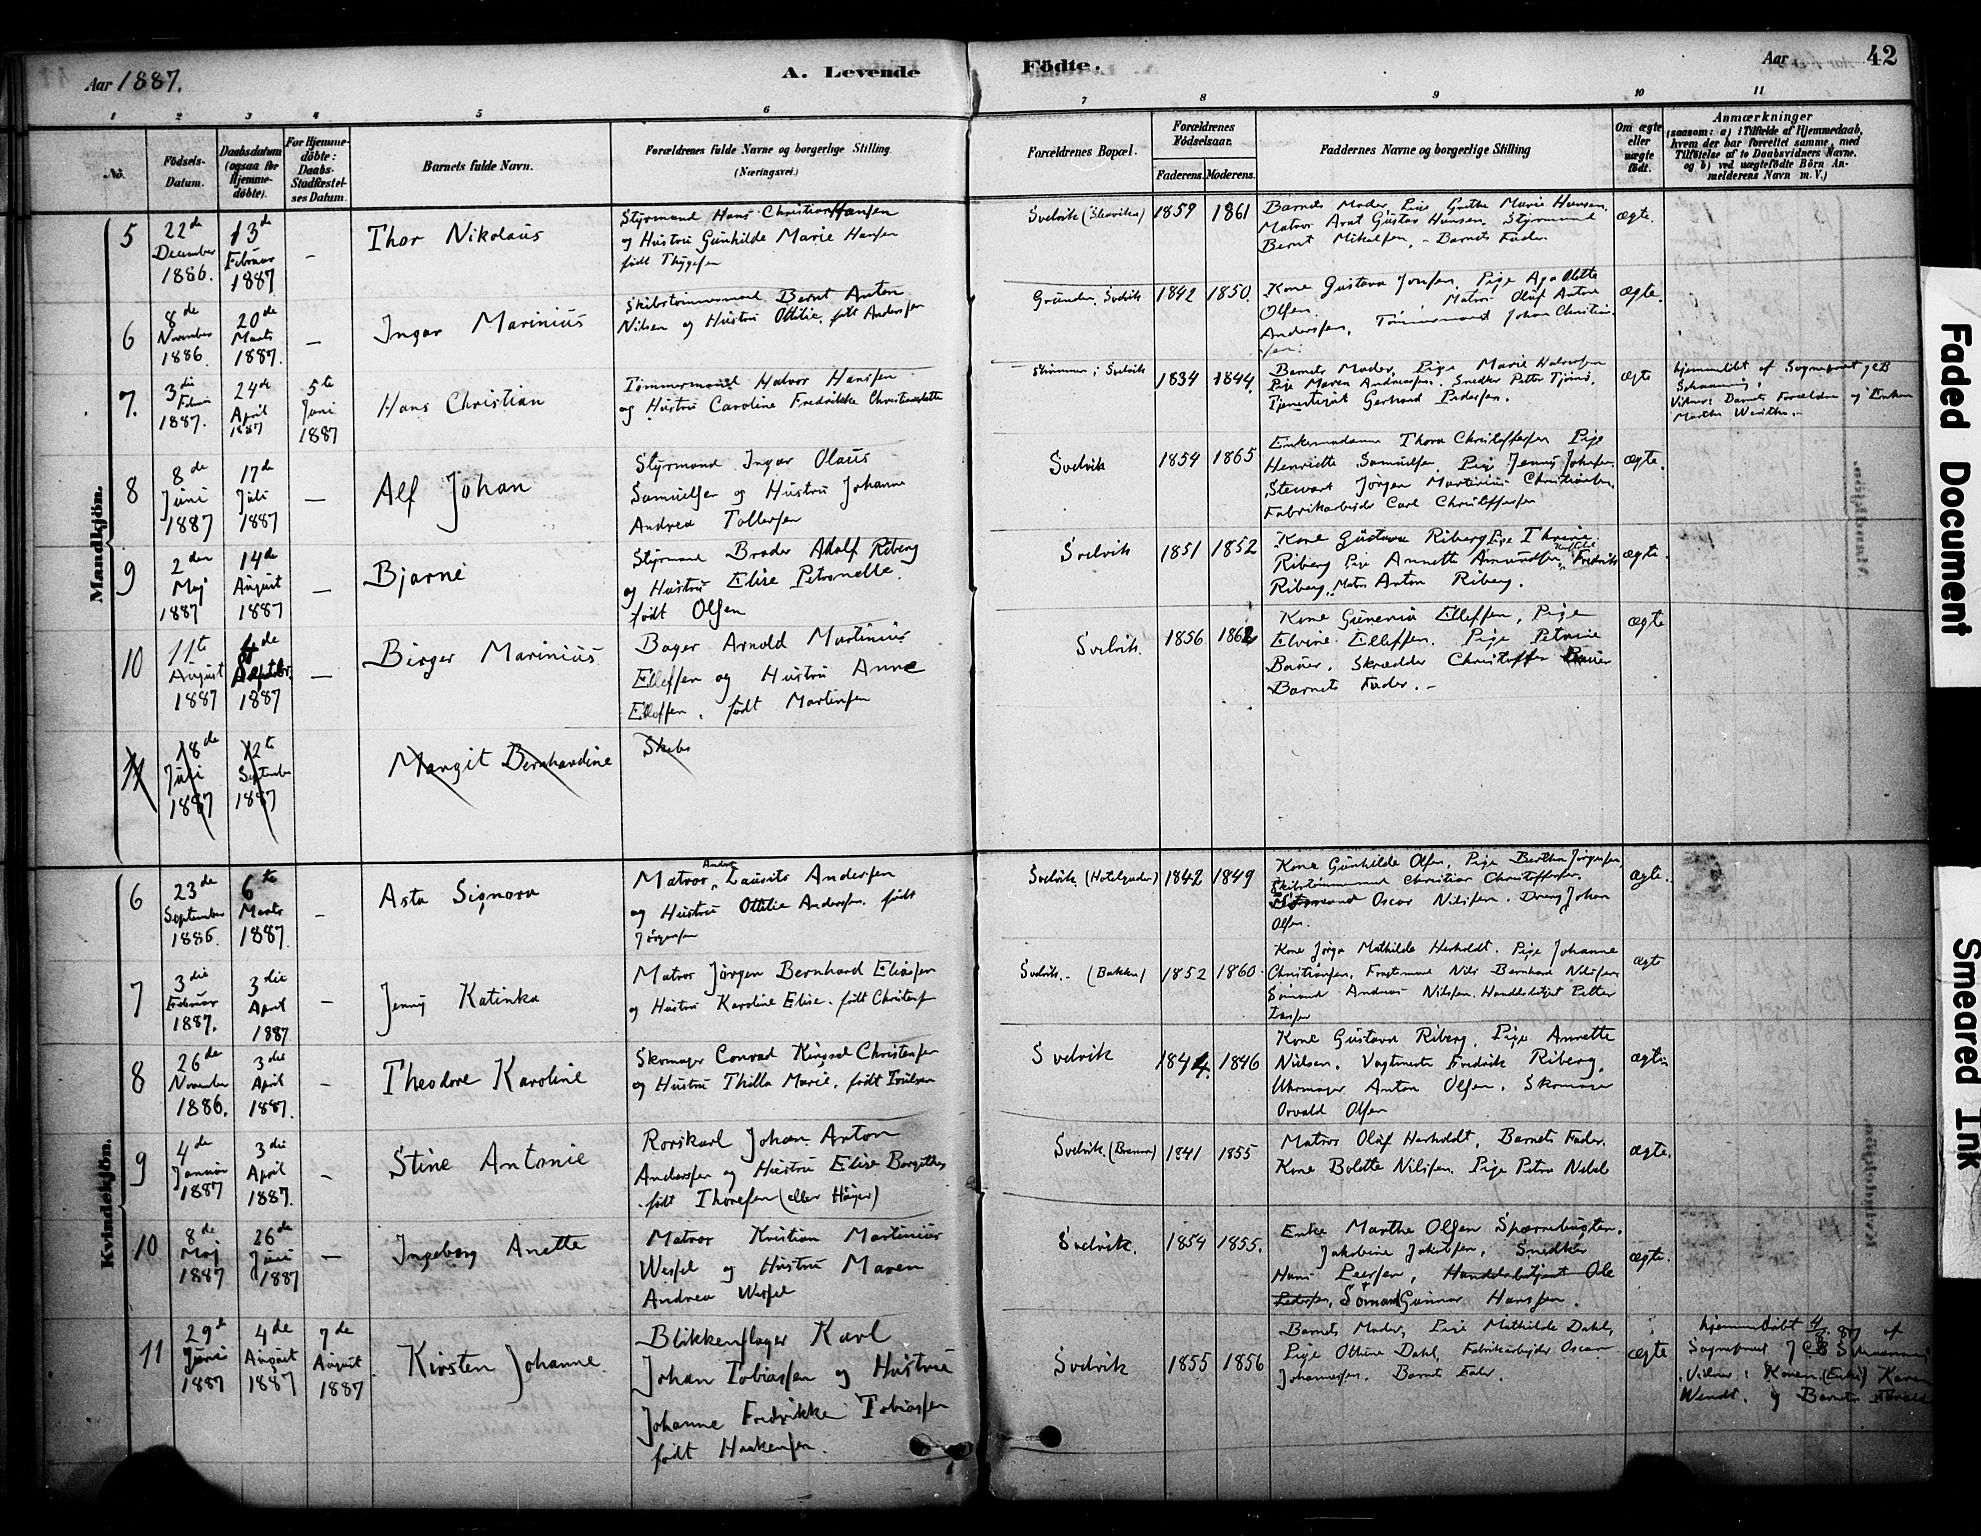 Aar 1887.
A. Levende
Födte.
Aar
42
1 2 3 4 5 6 7 8 9 10 11
No.
Födsels-Datum.
Daabsdatum (ogsaa for Hjemme-döbte).
For Hjemme-döbte: Daabs-Stadfæstel-ses Datum.
Barnets fulde Navn.
Forældrenes fulde Navne og borgerlige Stilling
(Næringsvei.)
Forældrenes Bopæl.
Forældrenes Födselsaar.
Faderens. Moderens.
Faddernes Navne og borgerlige Stilling
Om ægte eller uægte födt.
Anmærkninger
(saasom: a) i Tilfælde af Hjemmedaab,
hvem der har forrettet samme, med
Tilföielse af to Daabsvidners Navne.
og b) ved uægtefödte Börn An-
melderens Navn m. V.)
Mandkjön.
5
22de December 1886.
13de Februar 1887
Thor Nikolaus
Styrmand Hans Christian Hansen
og Hustru Gunhilde Marie Hansen
født Thygesen
Svelvik
1859 1861
Barnets Moder, Pige Grethe Marie Hansen,
Matros Arnt Gustav Hansen, Styrmand
Bernt Mikalsen, Barnets Fader
ægte.
6
8de November 1886
20de Marts 1887.
Ingar Marinius
Skibstømmermand Bernt Anton
Nilsen og Hustru Ottilie, født Andersen
Grunden, Svelvik
1842 1850.
Kone Gustava Jonsen, Pige Aga Olette
Olsen. Matros Oluf Anton
Andersen, Tømmermand Johan Christian-
sen.
ægte.
7.
3die Febru 1887.
24de April 1887
5te Juni 1887
Hans Christian
Tømmermand Halvor Hansen
og Hustru Caroline Fredrikke
Svelvik
1834 1844
Barnets Moder, Pige Marie Halvorsen
Pige Maren Andreassen, Snedker Petter
Tjenestegut Gerhard Pedersen.
ægte
hjemmedøbt af Sogneprest
Vidner: Barnets Forældre og Enken
Marthe
8
8de Juni 1887
17de Juli 1887
Alf Johan
Styrmand Ingar Olaus
Samuelsen og Hustru Johanne
Andrea Tollersen
Svelvik
1854 1865
Enkemadame Thora Christoffersen Pige
Henriette Samuelsen, Pige Jenny Johnsen,
Stewart Jørgen Martinius Christiansen,
Fabrikarbejder Carl Christoffersen
ægte.
9
2den Maj 1887
14de August 1887
Bjarne
Styrmand Broder Adolf Riberg
og Hustru Elise Petronelle.
født Olsen
Svelvik
1851 1852
Kone Gustava Riberg, Pige Thrine
Riberg Pige Annette Amundsen, Fredrik
Riberg, Matr. Anton Riberg.
ægte.
10
11te August 1887
4de Septbr. 1887
Birger Marinius
Bager Arnold Martinius
Elleffen og Hustru Anne
Elleffen, født Martinsen
Svelvik.
1856 1862
Kone Guneria Elleffen, Pige
Elvine Elleffen. Pige Petrine
Bauer, Skrædder Christoffer Bauer
Barnets Fader.
ægte
11
18de Juni 1887
12te September 1887
Margit Bernhardine
Skibs
Kvindekjön.
6
23de September 1886.
6te Marts 1887.
Asta Signora
Matros Lauritz Andersen
og Hustru Ottilie Andersen, født
Jörgensen
Svelvik
1842 1849
Kone Gunhilde Olsen, Pige Berthe Jørgensen,
Skibstømmermand Christian Christoffersen.
Oscar Nilsen. Dreng Johan
Olsen.
ægte.
7
3die Februar 1887.
3die April 1887
Jenny Katinka
Matros Jørgen Bernhard Eliassen
og Hustru Karoline Elise, født
Svelvik. (Bakken)
1852 1860.
Kone Mathilde Herholdt. Pige Johanne
Christiansen, Nils Bernhard Nilssen
Sømand Andreas Nilssen. Petter
Larsen
ægte
8
26de November 1886.
3die April 1887.
Theodore Karoline
Skomager Conrad Christensen
og Hustru Thilla Marie, født
Svelvik
1844. 1846
Kone Gustava Riberg, Pige Annette
Nielsen. Vagtmester Fredrik Riberg,
Uhrmager Anton Olsen, Skomager
Osvald Olsen
ægte.
9
4de Januar 1887
3die April 1887.
Stine Antonie
Rorskarl Johan Anton
Andersen og Hustru Elise
født Thoresen (eller Høyer)
Svelvik.
1841 1855
Matros Oluf Herholdt, Barnets Fader.
Kone Bolette Nilsen. Pige Petra
ægte.
10
8de Maj 1887
26de Juni 1887
Ingeborg Anette
Matros Kristian Martinius
Wessel og Hustru Maren
Andrea Wessel
Svelvik.
1854 1855.
Enke Marthe Olsen
Jakobine Jakobsen, Snedker
Hans Peersen, Handelsbetjent Ole
Pedersen, Sømand Gunnar Hansen.
ægte.
11
29de Juni 1887
4de August 1887
7de August 1887
Kirsten Johanne
Blikkenslager Karl
Johan Tobiassen og Hustru
Johanne Fredrikke Tobiassen
født Haakensen.
Svelvik
1855 1856
Barnets Moder, Pige Mathilde Dahl,
Pige Othine Dahl, Fabrikarbejder Oscar
Johannessen. Barnets Fader.
ægte
hjemmedøbt 4/8 87 af
Sogneprest
Vidner: Konen (Enke) Karen
Wendt, og Barnets
Faded Document
Smeared Ink